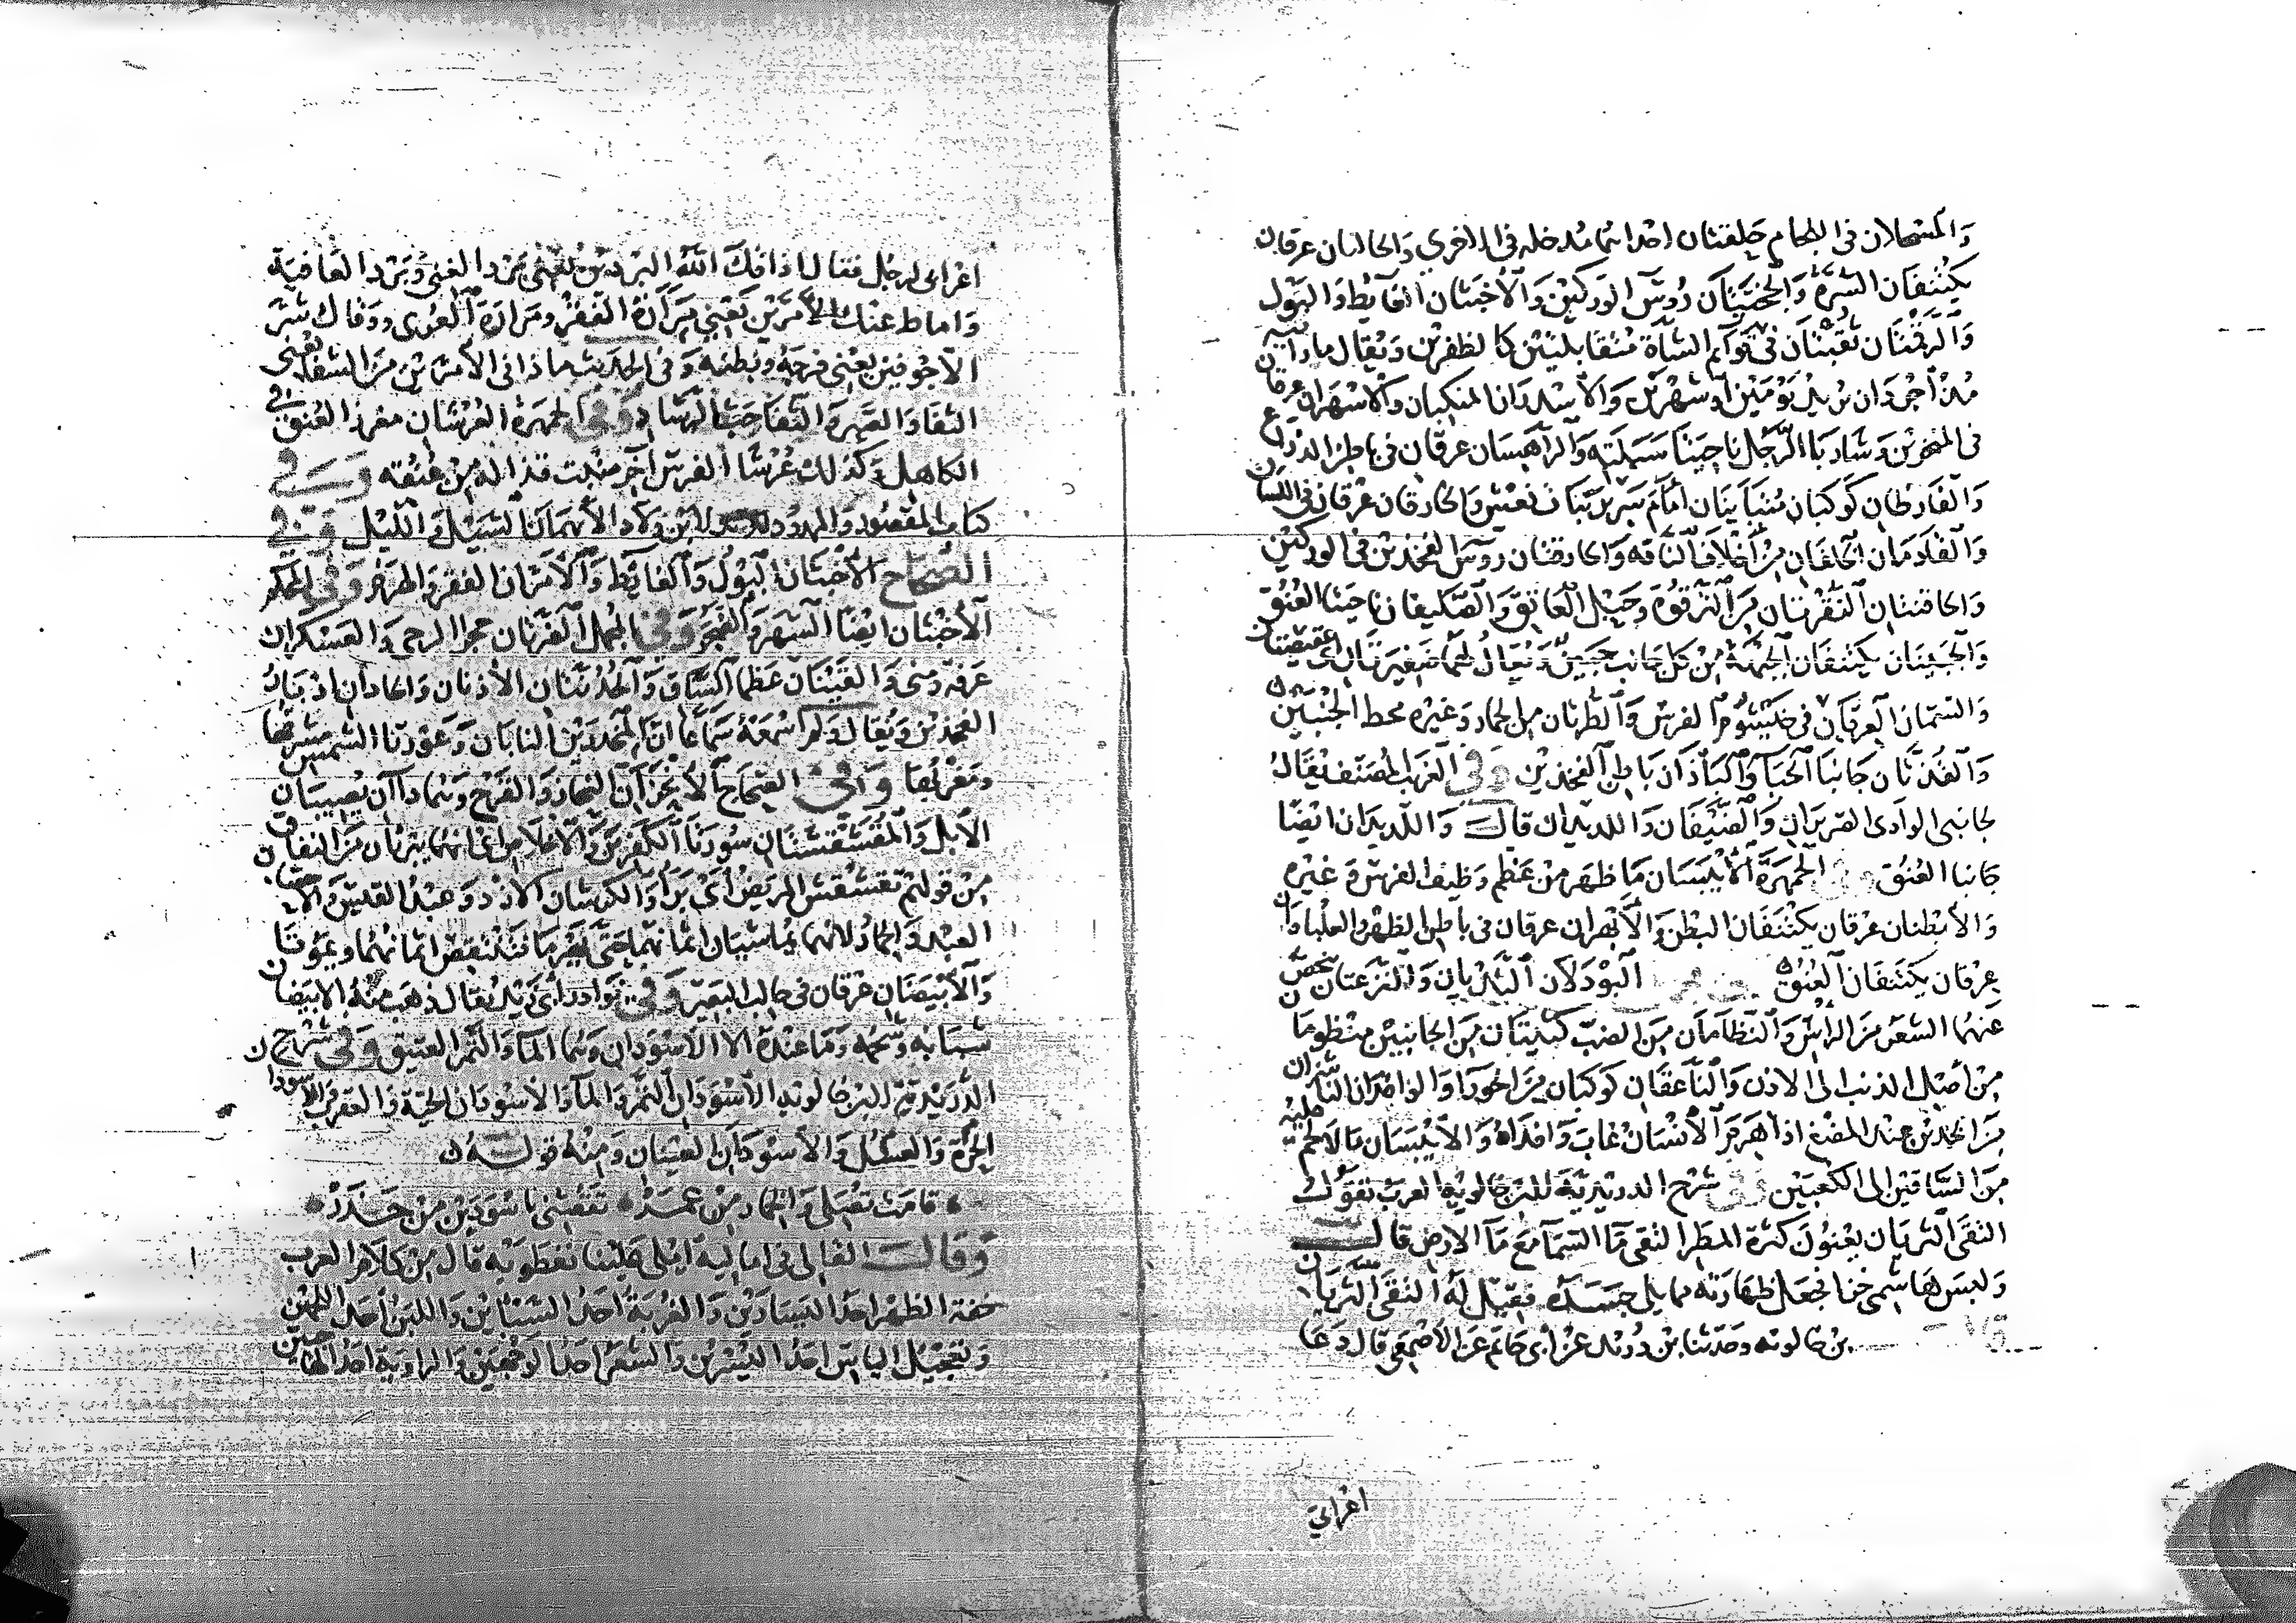 والمسحلان في اللجام حلقتان احداهما مدخله في الاخرى والحالبان عرقان
يكتنفان السرة والحجبتان رؤس الوركين والأخبثان الغايط والبول
والرقمتان نقبتان في قوايم الشاة متقابلتين كالظفرين ويقال ما رايته
مذ أجردان يريد يومين أو شهرين والاسدران المنكبان والاسهران عرقان
في المنخرين وشاربا الرجل ناحيتا سبلته والراهسان عرقان في باطن الذراع
والفارطان كوكبان متباينان أمام سرير بنات نعش والحارقان عرقان في اللسان
والقادمان الخلفان من أخلاف الناقه والحارقتان روس الفخذين في الوركين
والحاقنتان النقرتان بين الترقوة وحبل العاتق والصليفان ناحيتا العنق
والجبينان يكتنفان الجبهة من كل جانب جبين ويقال لهما ضفيرتان أي عقيصتان
والسمان العرقان في خيشوم الفرس والطرتان من الحمار وغيره مخط الجنبين
والقذتان جانبا الحيا والبادان باطن الفخذين وفي الغريب المصنف يقال
لجانبي الوادى الضريران والضيفان واللديدان قال واللديدان ايضا
جانبا العنق وفي الجمهرة الأيبسان ما ظهر من عظم وظيف الفرس وغيره
والأبطنان عرقان يكتنفان البطن والأبهران عرقان في باطن الظهر والعلباوان
عرقان يكتنفان العنق البودلان الثديان والنزعتان ينحص
عنهما الشعر من الراس والنظامان من الضب كشيتان من الجانبين منظومتان
من أصل الذنب الى الاذن والناعقان كوكبان من الجوزا والوافدان الناشزان
من الخدين عند المضغ اذا هرم الأنسان غاب وافداه والأيبسان ما لا لحم عليه
من الساقين الى الكعبين وفي شرح الدريدية لابن خالويه العرب تقول
التقى الثريان يعنون كثرة المطر التقى ما السما مع ما الارض قال
ولبس هاشمي خزا فجعل ظهارته مما يلي جسده فقيل له التقى الثريان
بن خالويه وحدثنا بن دريد عن أبي حاتم عن الأصمعي قال دعا
اعرابي
اعرابي لرجل فقال اذاقك الله البردين يعني برد الغنى وبرد العافية
واماط عنك الأمرين يعني مرارة الفقر ومرارة العرى ووقاك شر
الأجوفين يعني فرجه وبطنه وفي الحديث ماذا في الأمرين من الشفا يعني
الثفا والصبر والثفا حب الرشاد وفي الجمهرة العرشان مغرز العنق في
الكاهل وكذلك عرشا الفرس آخر منبت قذاله من عنقه وفي
كتاب المقصور والممدود لابن ولاد الأيهمان السيل والليل وفي
الصحاح الأخبثان البول والغايط والأمران الفقر والهرم وفي المحكم
الأخبثان ايضا السهر والضجر وفي المجمل الغرتان حجرا الرحي والعسكران
عرفه ومنى والقينان عظما الساق والحرتان الأذنان والحاذان ادبار
الفخذين ويقال ولم اسمعه سماعا ان المخلدين النابان وعقوتا الشمس مشرقها
ومغربها وفي الصحاح الأنحزان النحاز والقرح وهما داآن يصيبان
الأبل والمقشقشتان سورتا الكافرون والأخلاص اي انهما يبريان من النفاق
من قولهم تقشقش المريض أي برأ والكرشان الازد وعبد القيس والاحصان
العبد والحمار لانهما يماشيان اثمانهما حتى يهرما فتنتقص اثمانهما ويموتا
والأبيضان عرقان في حالب البعير وفي نوادر ابى زيد يقال ذهب منه الابيضان
شبابه وشحمه وما عنده الا الاسودان وهما الما والتمر العتيق وفي شرح
الدريدية لابن خالويه الأسودان التمر والما والأسودان الحية والعقرب والاسودان
الحرة والعسكل والأسودان العينان ومنه قوله
قامت تصلي والخمار من عمد تقصني باسودين من حذر
وقال القالي في اماليه املى علينا نفطويه قال من كلام العرب
خفة الظهر احد اليسارين والغربة احد السباين واللبن احد اللحمين
وتعجيل الياس احد اليسرين والشعر احد الوجهين والراوية احد الهاجيين